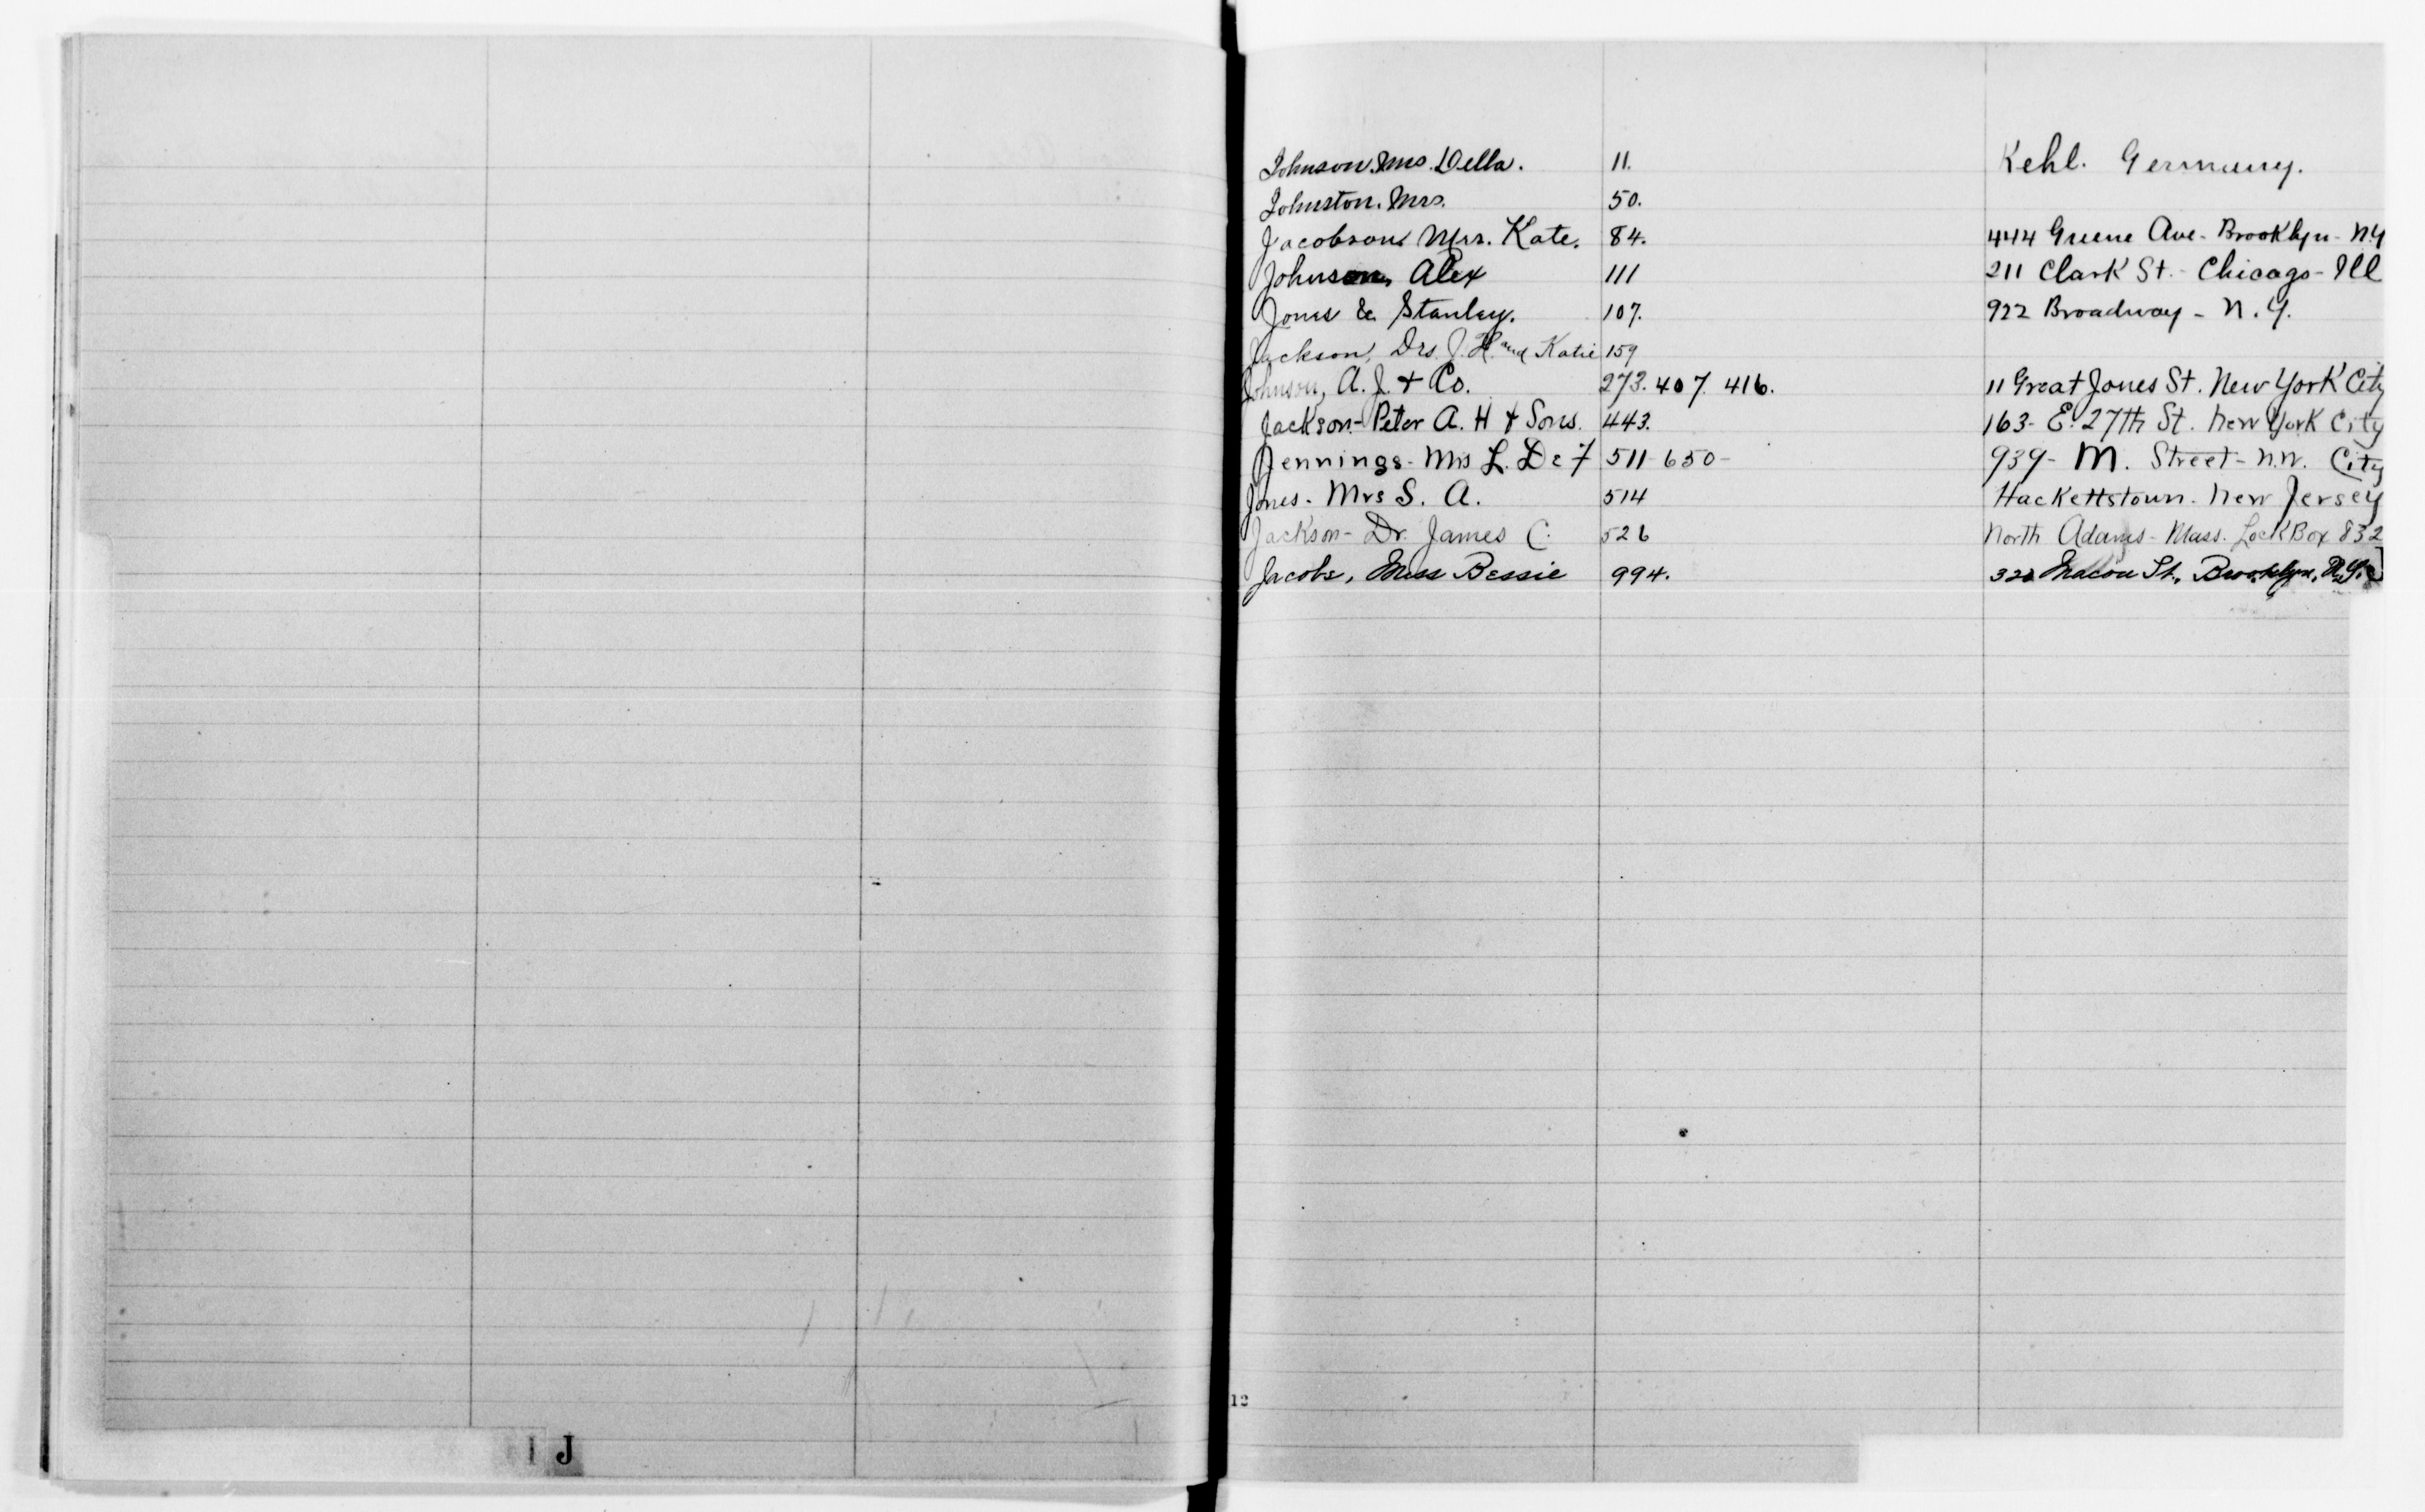 Johnson. Mrs. Della. 11. Kehl. Germany.
Johnston. Mrs. 50.
Jacobson Mrs. Kate. 84. 444 Greene Ave - Brooklyn - N.Y
Johnson, Alex 111 211 Clark St. - Chicago - Ill
Jones & Stanley. 107. 922 Broadway - N.Y.
Jackson, Drs. J. H. and Katie 159
Johnson, A. J. + Co. 273. 407. 416. 11 Great Jones St. New York City
Jackson - Peter A. H + Sons. 443. 163 - E. 27th St. New York City
Jennings - Mrs L. De F 511 - 650 - 939 - M. Street - N.W. City
Jones - Mrs S. A. 514 Hackettstown - New Jersey
Jackson - Dr. James C. 526 North Adams - Mass. Lock Box 832
Jacobs, Miss Bessie 994. Macon St., Brooklyn, N.Y.
12
I J